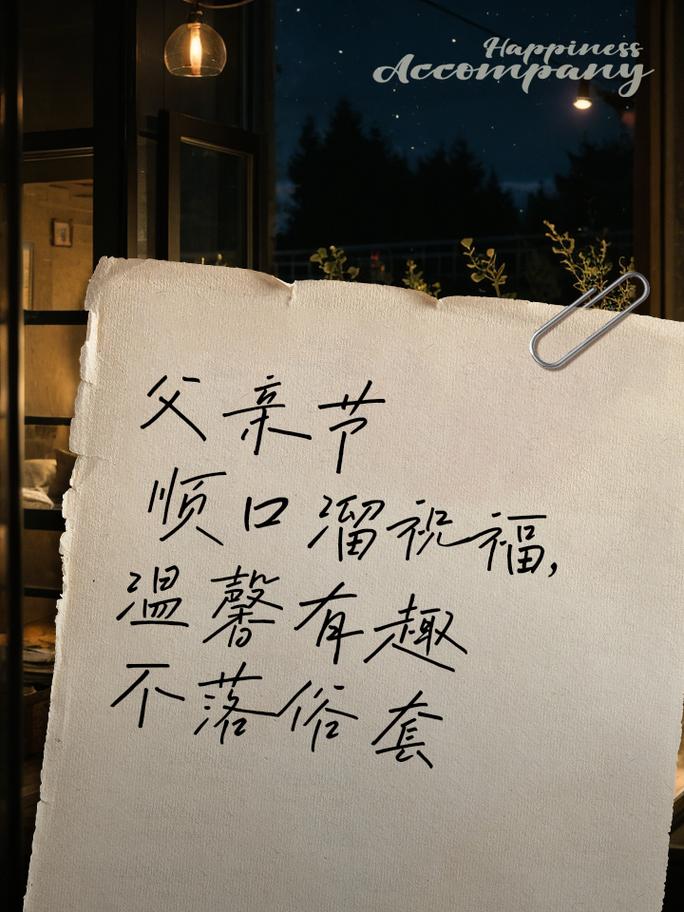 Happiness
Accompany
父亲节
顺口溜祝福,
温馨有趣
不落俗套